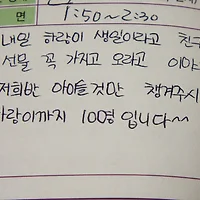 면 1:50~2:30
내일 하랑이 생일이라고 친구
선물 꼭 가지고 오라고 이야
저희반 아이들것만 챙겨주시
하랑이까지 10명 입니다~